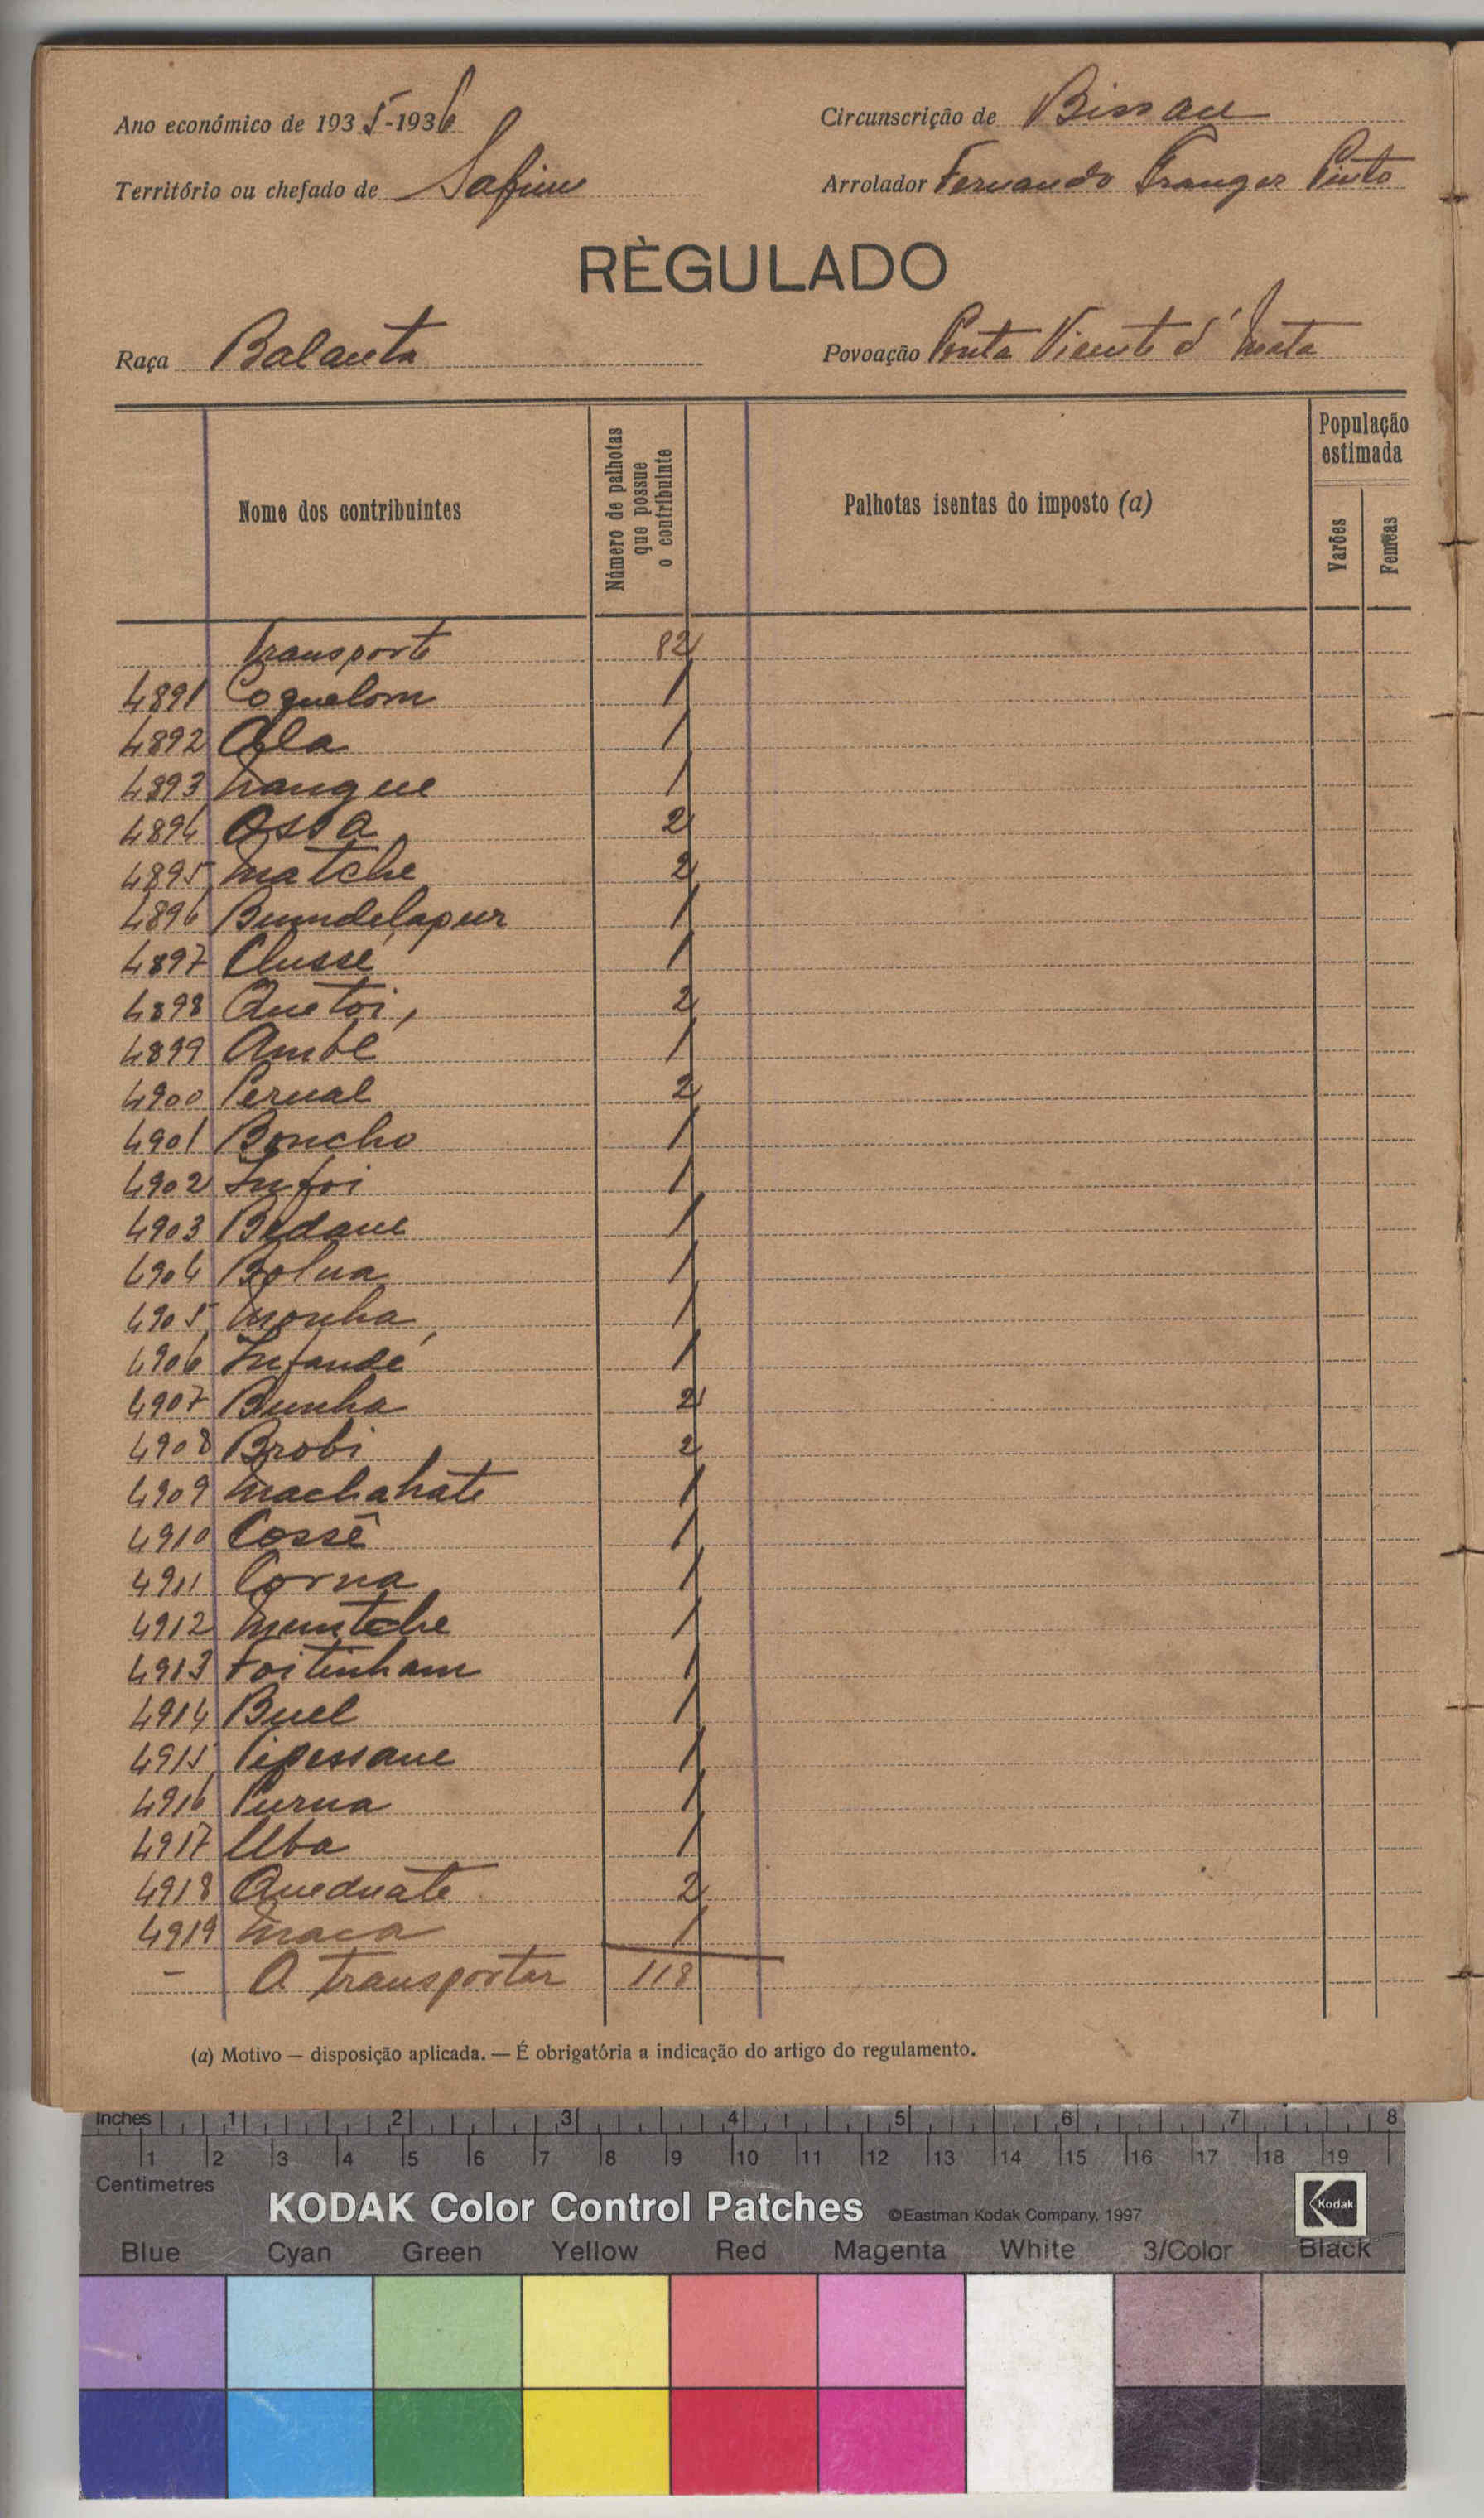 Ano económico de 1935-1936 Circunscrição de Bissau
Território ou chefado de Safim Arrolador Fernando Pinto
RÈGULADO
Raça Balanta Povoação Ponta Vicente d' Mata
Nome dos contribuintes
Número de palhotas que possue o contribuinte
Palhotas isentas do imposto (a)
População estimada
Varões
Femeas
Transporte 82
4891 Coquelom 1
4892 Ala 1
4893 Mangue 1
4894 Ossa 2
4895 Matche 2
4896 Bumdelapur 1
4897 Clussé 1
4898 Quetoi 2
4899 Ambé 1
4900 Pernal 2
4901 Boncho 1
4902 Infoi 1
4903 Bedane 1
4904 Bolna 1
4905 Monha 1
4906 Infandé 1
4907 Bunha 2
4908 Brobi 2
4909 Machahate 1
4910 Cossê 1
4911 Corna 1
4912 Muntche 1
4913 Foitinham 1
4914 Buel 1
4915 Pipessane 1
4916 Purna 1
4917 Uba 1
4918 Queduate 2
4919 Maca 1
- A transportar 118
(a) Motivo — disposição aplicada. — É obrigatória a indicação do artigo do regulamento.
Inches 1 2 3 4 5 6 7 8
1 2 3 4 5 6 7 8 9 10 11 12 13 14 15 16 17 18 19
Centimetres
KODAK Color Control Patches ©Eastman Kodak Company, 1997 Kodak
Blue Cyan Green Yellow Red Magenta White 3/Color Black